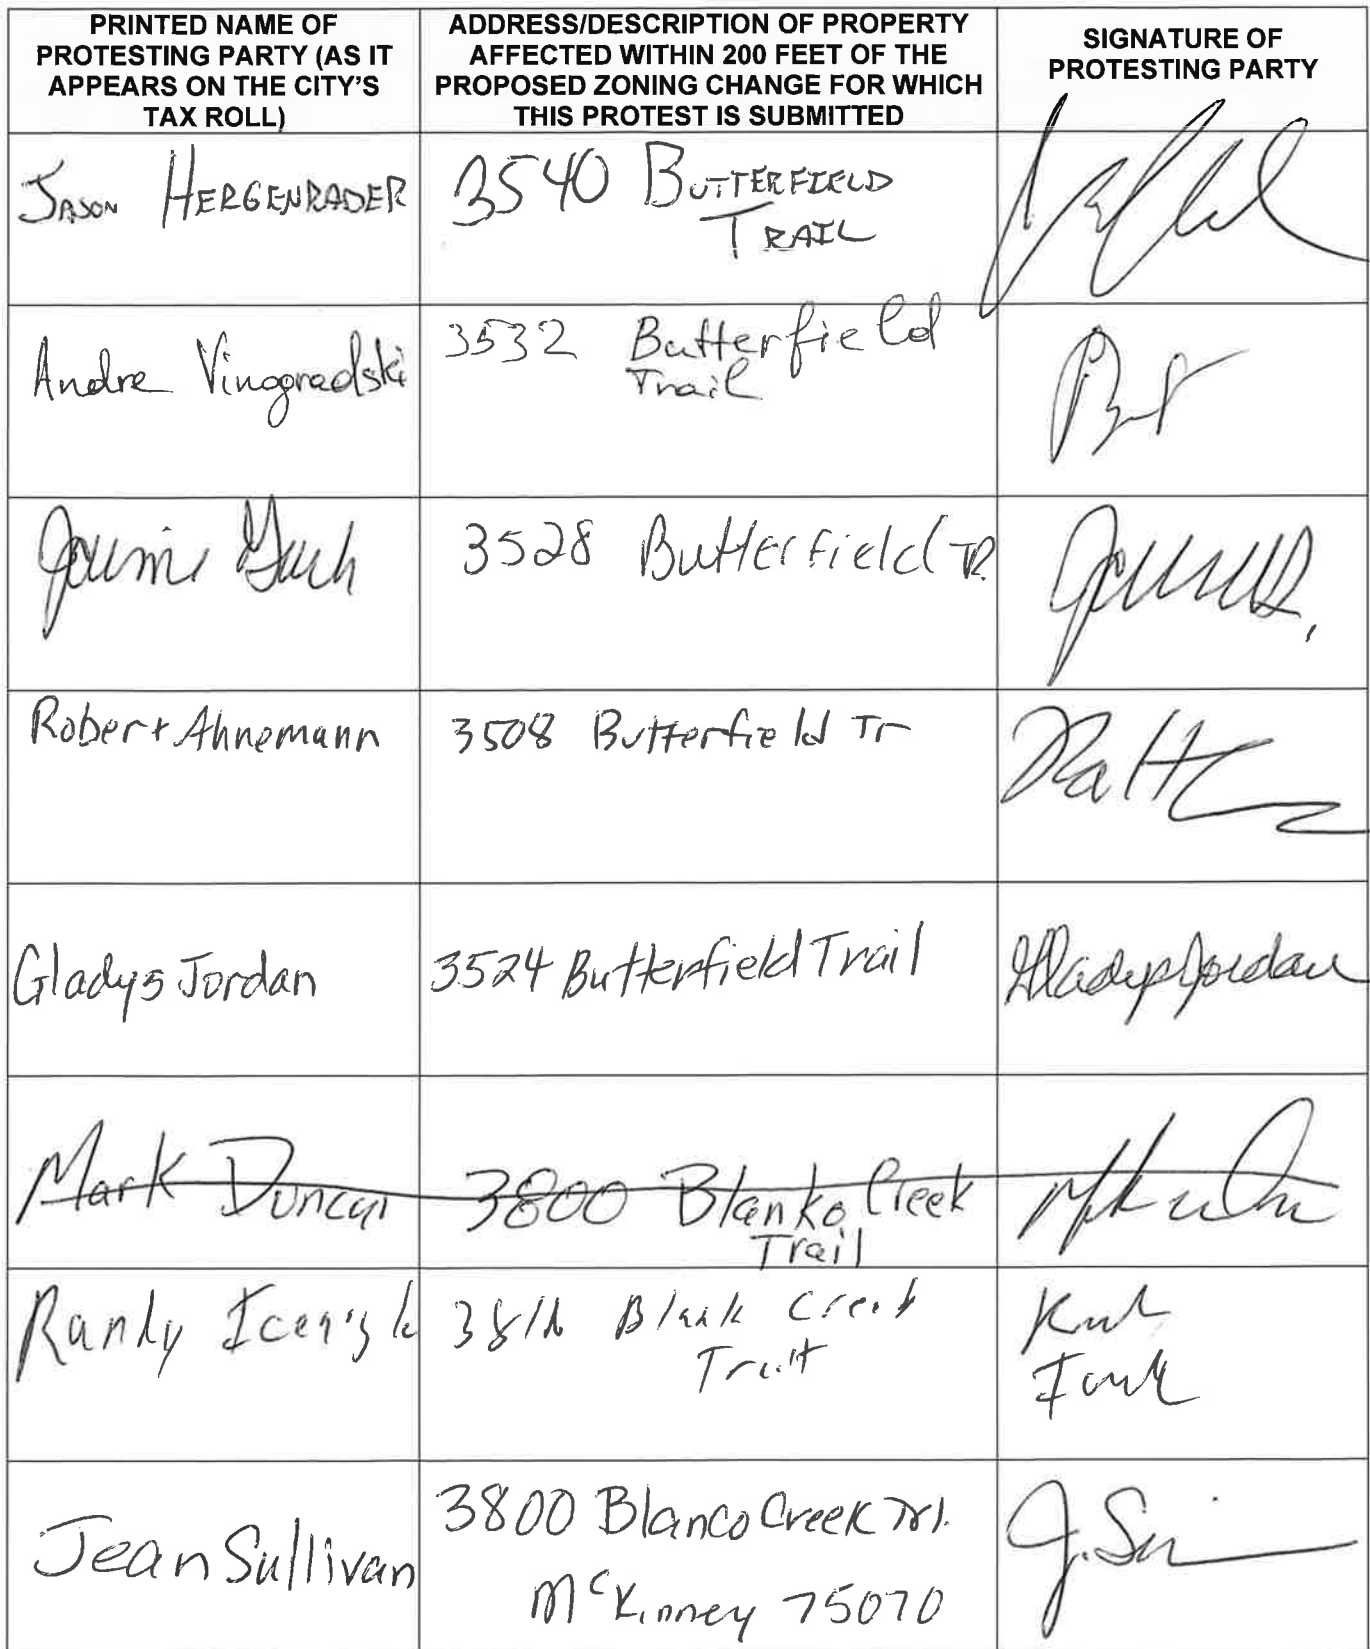 PRINTED NAME OF
PROTESTING PARTY (AS IT
APPEARS ON THE CITY'S
TAX ROLL)
ADDRESS/DESCRIPTION OF PROPERTY
AFFECTED WITHIN 200 FEET OF THE
PROPOSED ZONING CHANGE FOR WHICH
THIS PROTEST IS SUBMITTED
SIGNATURE OF
PROTESTING PARTY
JASON HERGENRADER
3540 BUTTERFIELD
TRAIL
Andre Vinogradski
3532 Butterfield
Trail
3528 Butterfield TR
Robert Ahnemann
3508 Butterfield Tr
Gladys Jordan
3524 Butterfield Trail
Gladys Jordan
Mark Duncan
3800 Blanko Creek
Trail
Randy
Creek
Jean Sullivan
3800 Blanco Creek Trl.
McKinney 75070
J. S